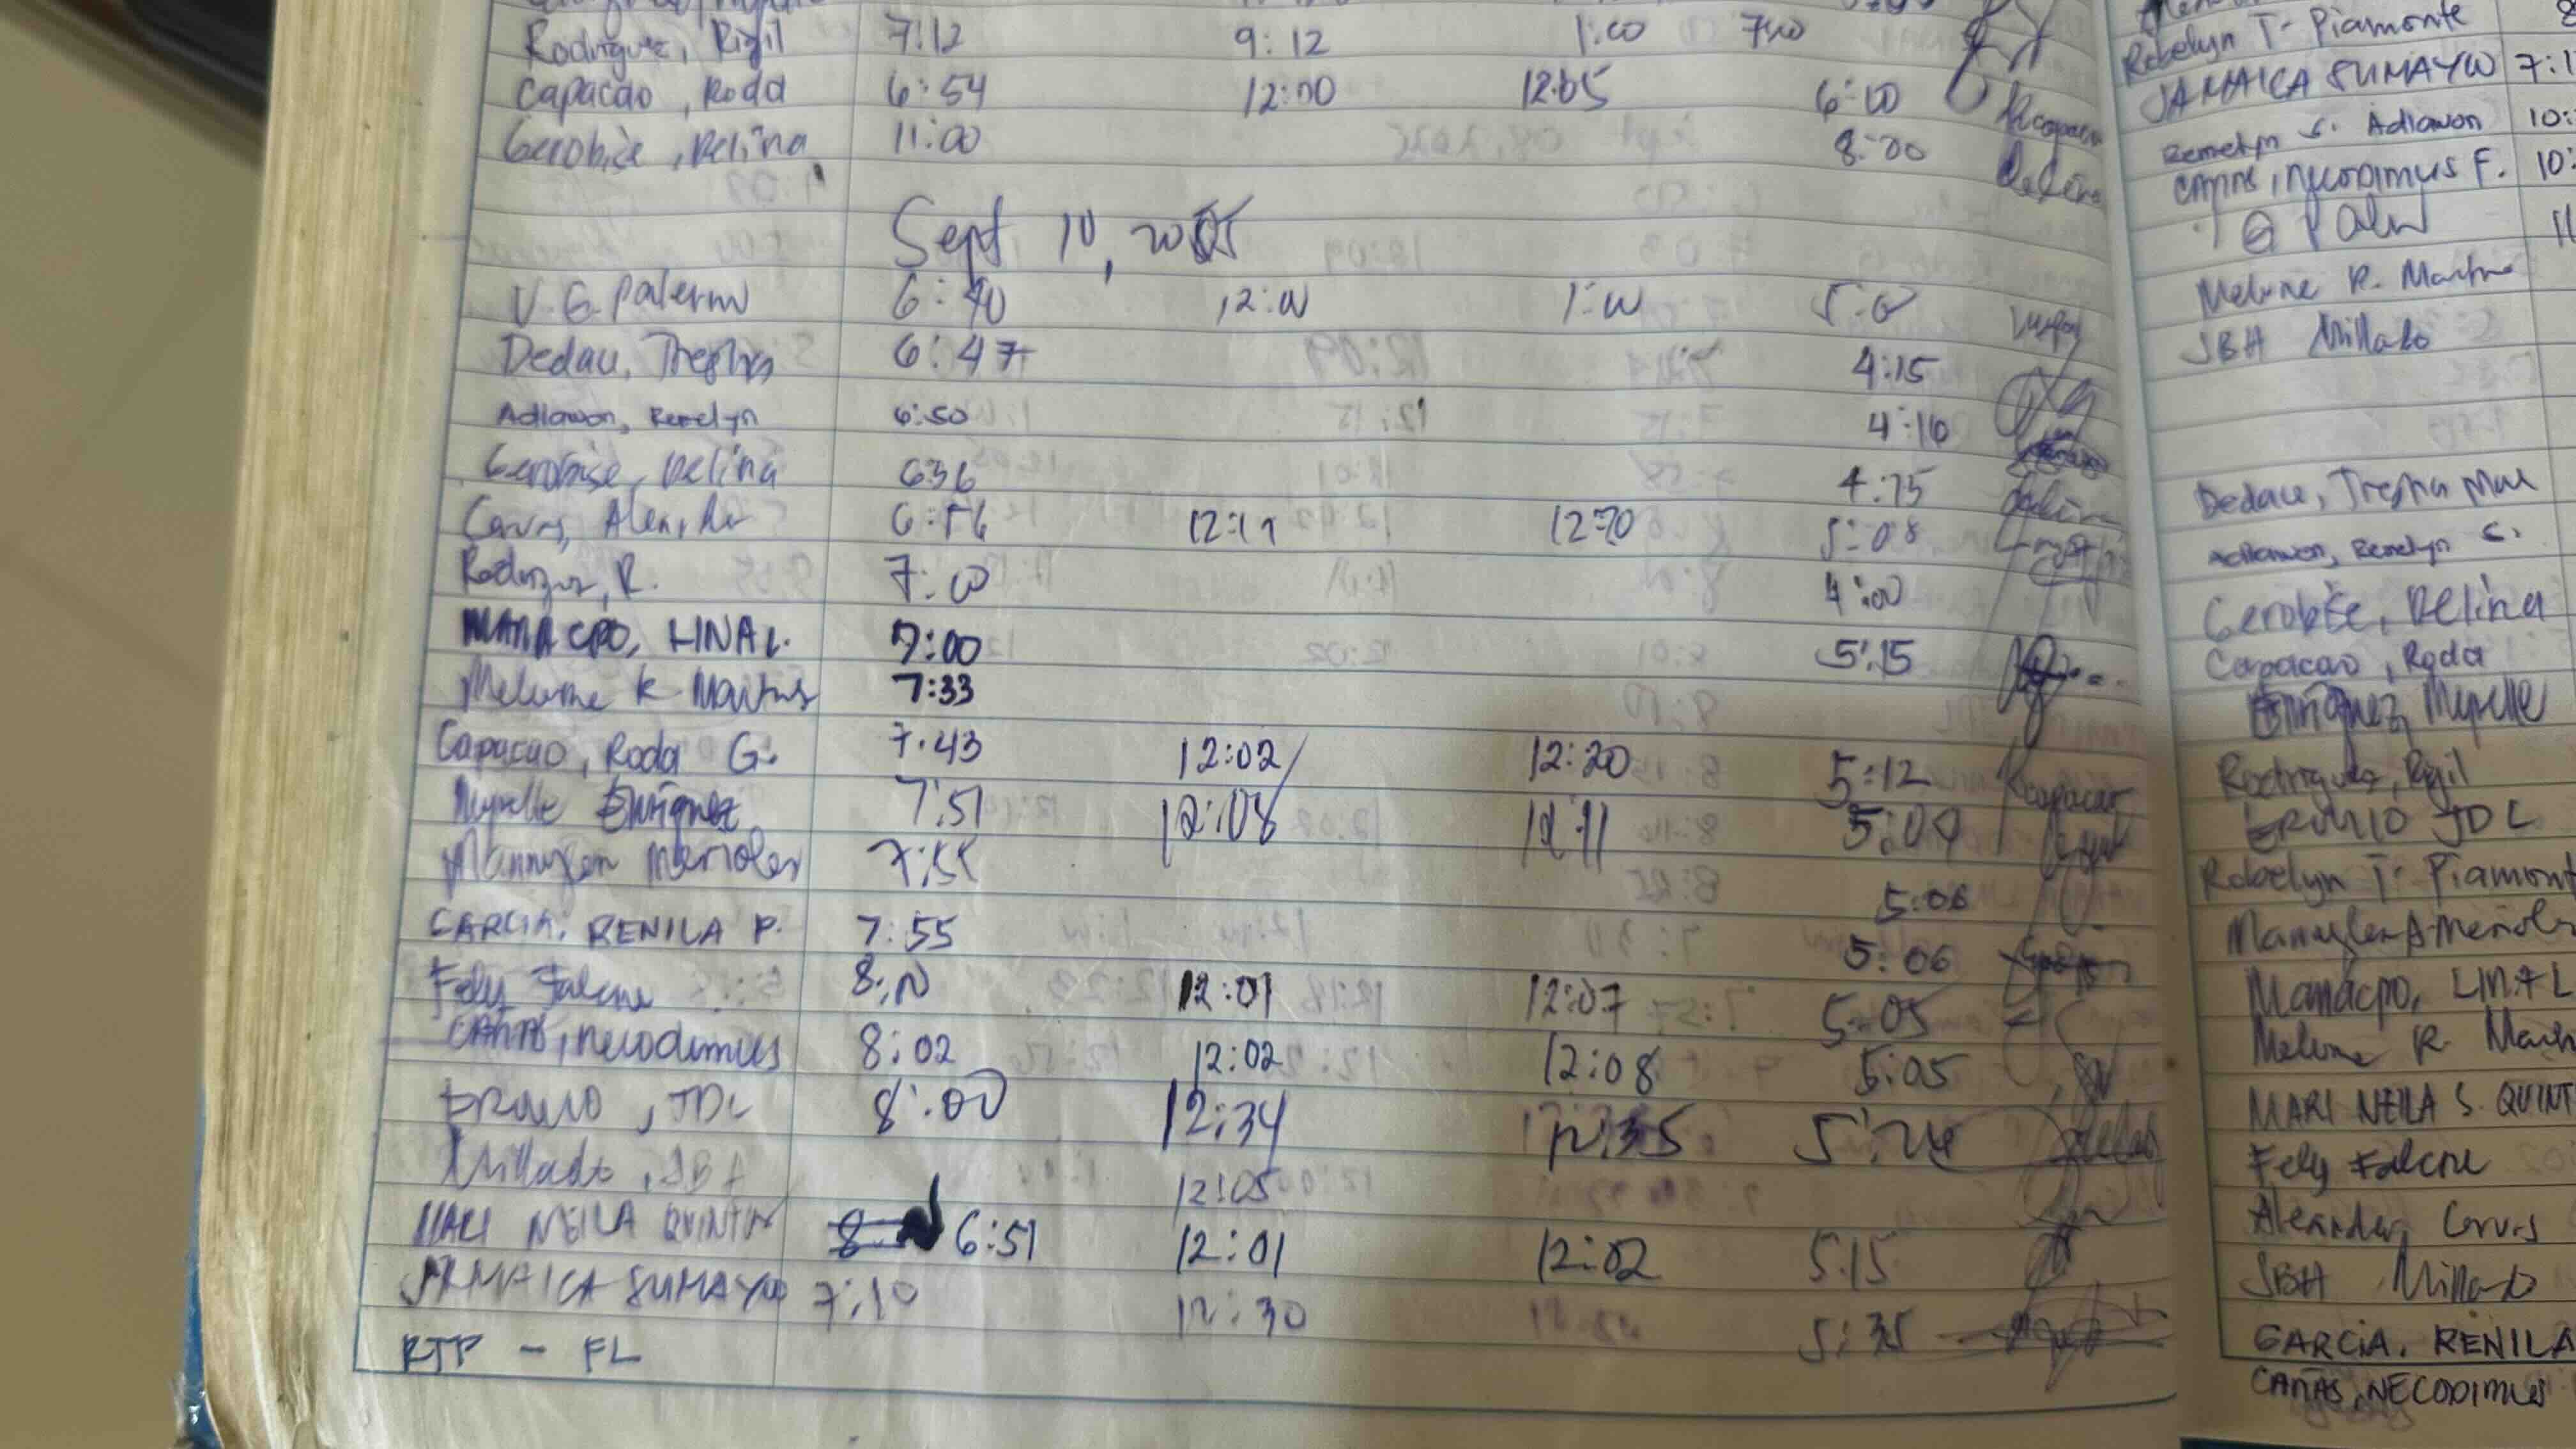 Rodriguez, Rigil 7:12 9:12 1:00 7:00
Capacao, Roda 6:54 12:00 12:05 6:00 Rcapacao
Gerobise, Delina 11:00 8:00 Delina
Sept 10, 2025
V. G. Palermo 6:40 12:00 1:00 5:00
Dedau, Tresha 6:47 4:15
Adlawon, Remelyn 6:50 4:16
Gerobise, Delina 636 4:15 Delina
Corvs, Alexander 6:56 12:19 12:20 5:08
Rodriguez, R. 7:00 4:00
MANACPO, LINA L. 7:00 5:15
Melvine R Martins 7:33
Capacao, Roda G. 7:43 12:02 12:20 5:12 Rcapacao
Myrelle Enriquez 7:51 12:08 12:11 5:09
Mannylen Merioles 7:55 5:06
GARCIA, RENILA P. 7:55 5:06
Fely Falcne 8:00 12:01 12:07 5:05
CAÑAS, Necodimus 8:02 12:02 12:08 5:05
ERONIO, JDL 8:00 12:34 12:35 5:24
Millado, JBH 12:05
MARI NEILA QUINTIN 6:51 12:01 12:02 5:15
JAMAICA SUMAYO 7:10 12:30 5:35
RTP - FL
Robelyn T. Piamonte 8
JAMAICA SUMAYO 7:1
Remelyn S. Adlawon 10:
CAÑAS, NECODIMUS F. 10:
G Palermo 11
Melvine R. Martins
JBH Millado
Dedace, Tresha Mae
Adlawon, Remelyn S.
Gerobise, Delina
Capacao, Roda
Enriquez, Myrelle
Rodriguez, Rigil
ERONIO JDL
Robelyn T. Piamont
Mannylen A. Meriole
Manacpo, LINA L
Melvine R. Mart
MARI NEILA S. QUINT
Fely Falcne
Alexander Corvs
JBH Millado
GARCIA, RENILA
CAÑAS, NECODIMUS